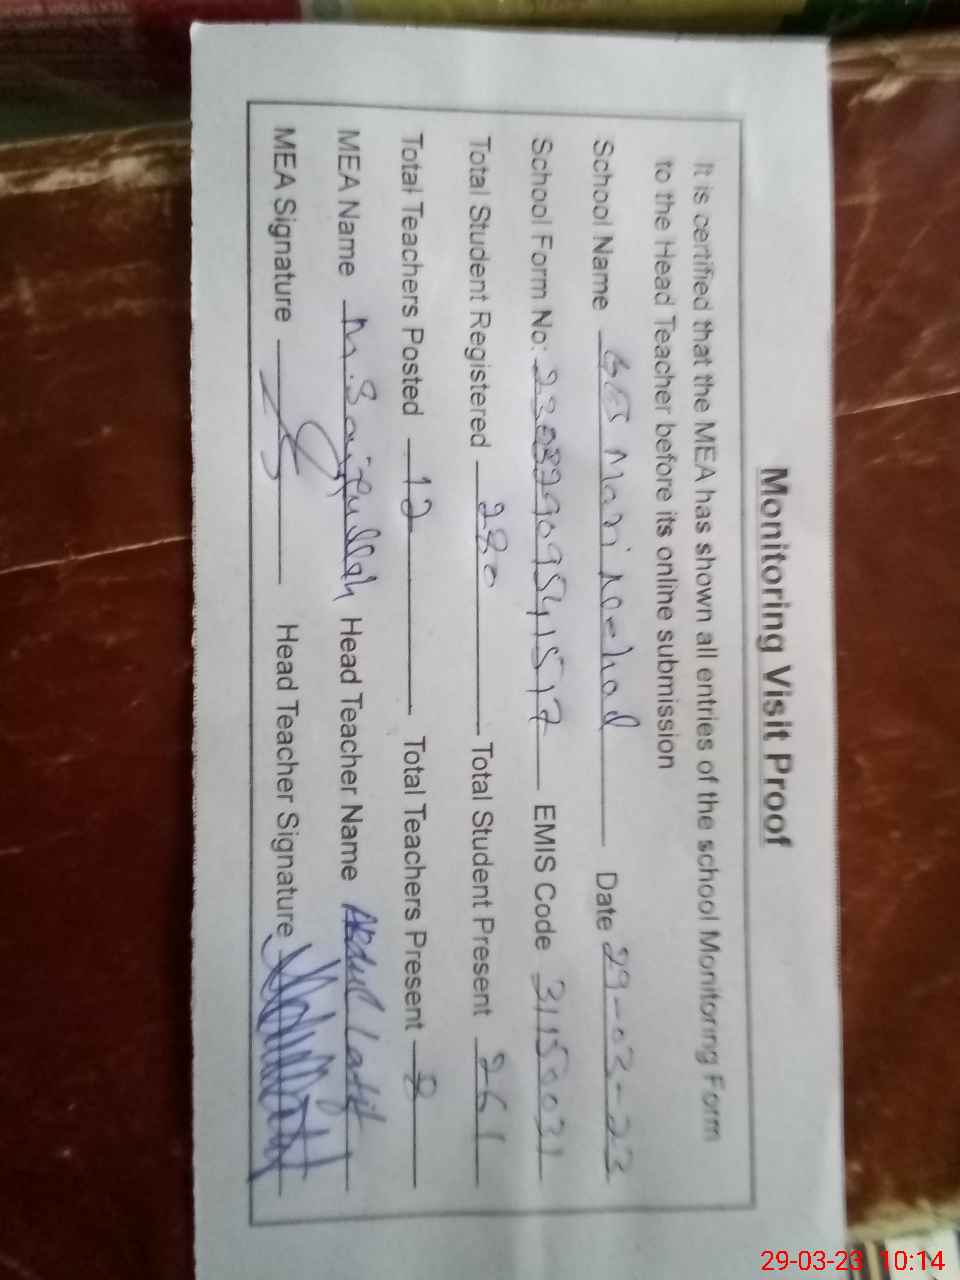 Monitoring Visit Proof
It is certified that the MEA has shown all entries of the school Monitoring Form
to the Head Teacher before its online submission
School Name GES Mari Date 29-03-23
School Form No: 23032909541517 EMIS Code 31150031
Total Student Registered 280 Total Student Present 261
Total Teachers Posted 12 Total Teachers Present 8
MEA Name M. Saifullah Head Teacher Name Abdul Latif
MEA Signature Head Teacher Signature
29-03-23 10:14